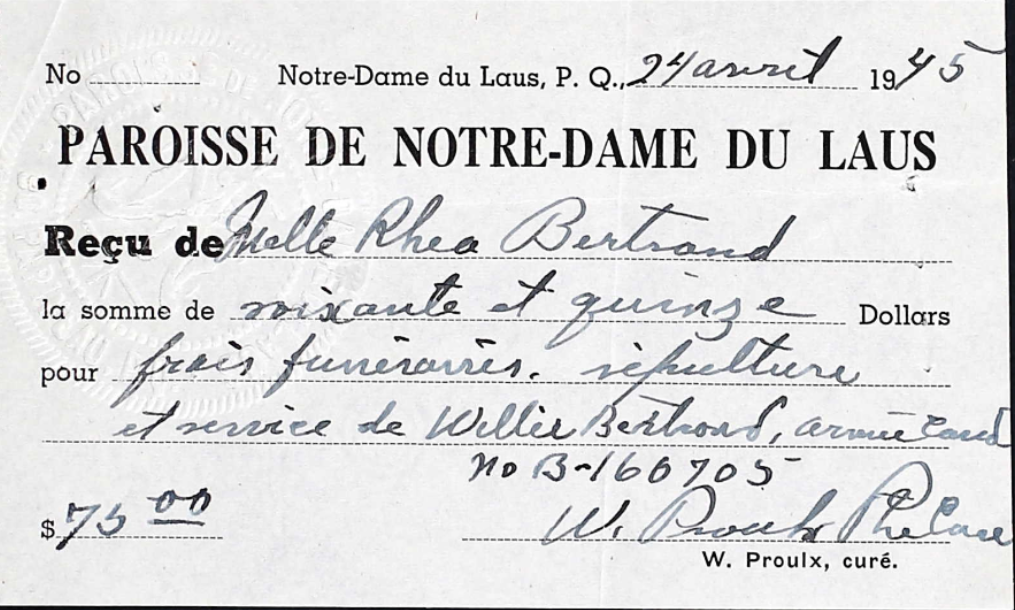 No Notre-Dame du Laus, P. Q., 24 avril 1945
PAROISSE DE NOTRE-DAME DU LAUS
Reçu de Melle Rhea Bertrand
la somme de soixante et quinze Dollars
pour frais funéraires. sépulture
et service de Willie Bertrand, armée Canad
no B-160705
$ 75 00
W. Proulx Ptre Curé
W. Proulx, curé.